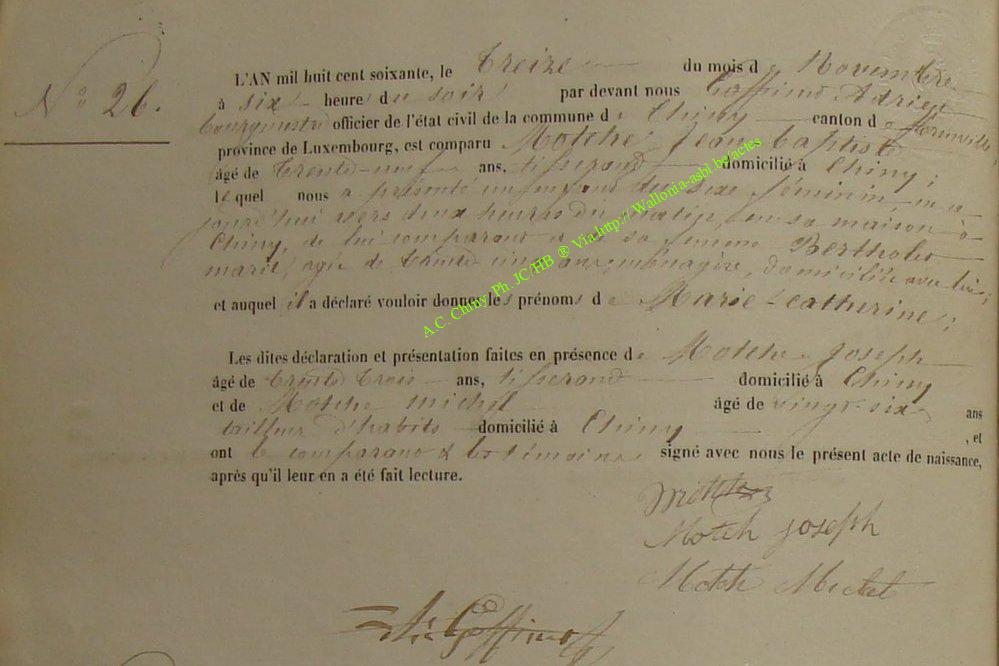 N° 26.
L'AN mil huit cent soixante, le Treize du mois de Novembre
à six heure du soir par devant nous Goffinet Adrien
bourgmestre officier de l'état civil de la commune de Chiny canton de Florenville
province de Luxembourg, est comparu Motché Jean Baptiste
âgé de Trente-neuf ans, tisserand domicilié à Chiny;
lequel nous a présenté un enfant du sexe féminin, né
jourd'hui vers deux heures du matin, en sa maison à
Chiny, de lui comparant et de sa femme Bertholet
marie, agée de trente cinq ans, ménagère, domiciliée avec lui;
et auquel il a déclaré vouloir donner les prénoms de Marie-Catherine;
Les dites déclaration et présentation faites en présence de Motche Joseph
âgé de trente trois ans, tisserand domicilié à Chiny
et de Motche Michel âgé de vingt-six ans
tailleur d'habits domicilié à Chiny , et
ont le comparant & les témoins signé avec nous le présent acte de naissance,
après qu'il leur en a été fait lecture.
Motch Joseph
Motch Michel
Goffinet
A.C. Chiny, Ph. JC/HB ® Via.http://Wallonia-asbl.be/actes